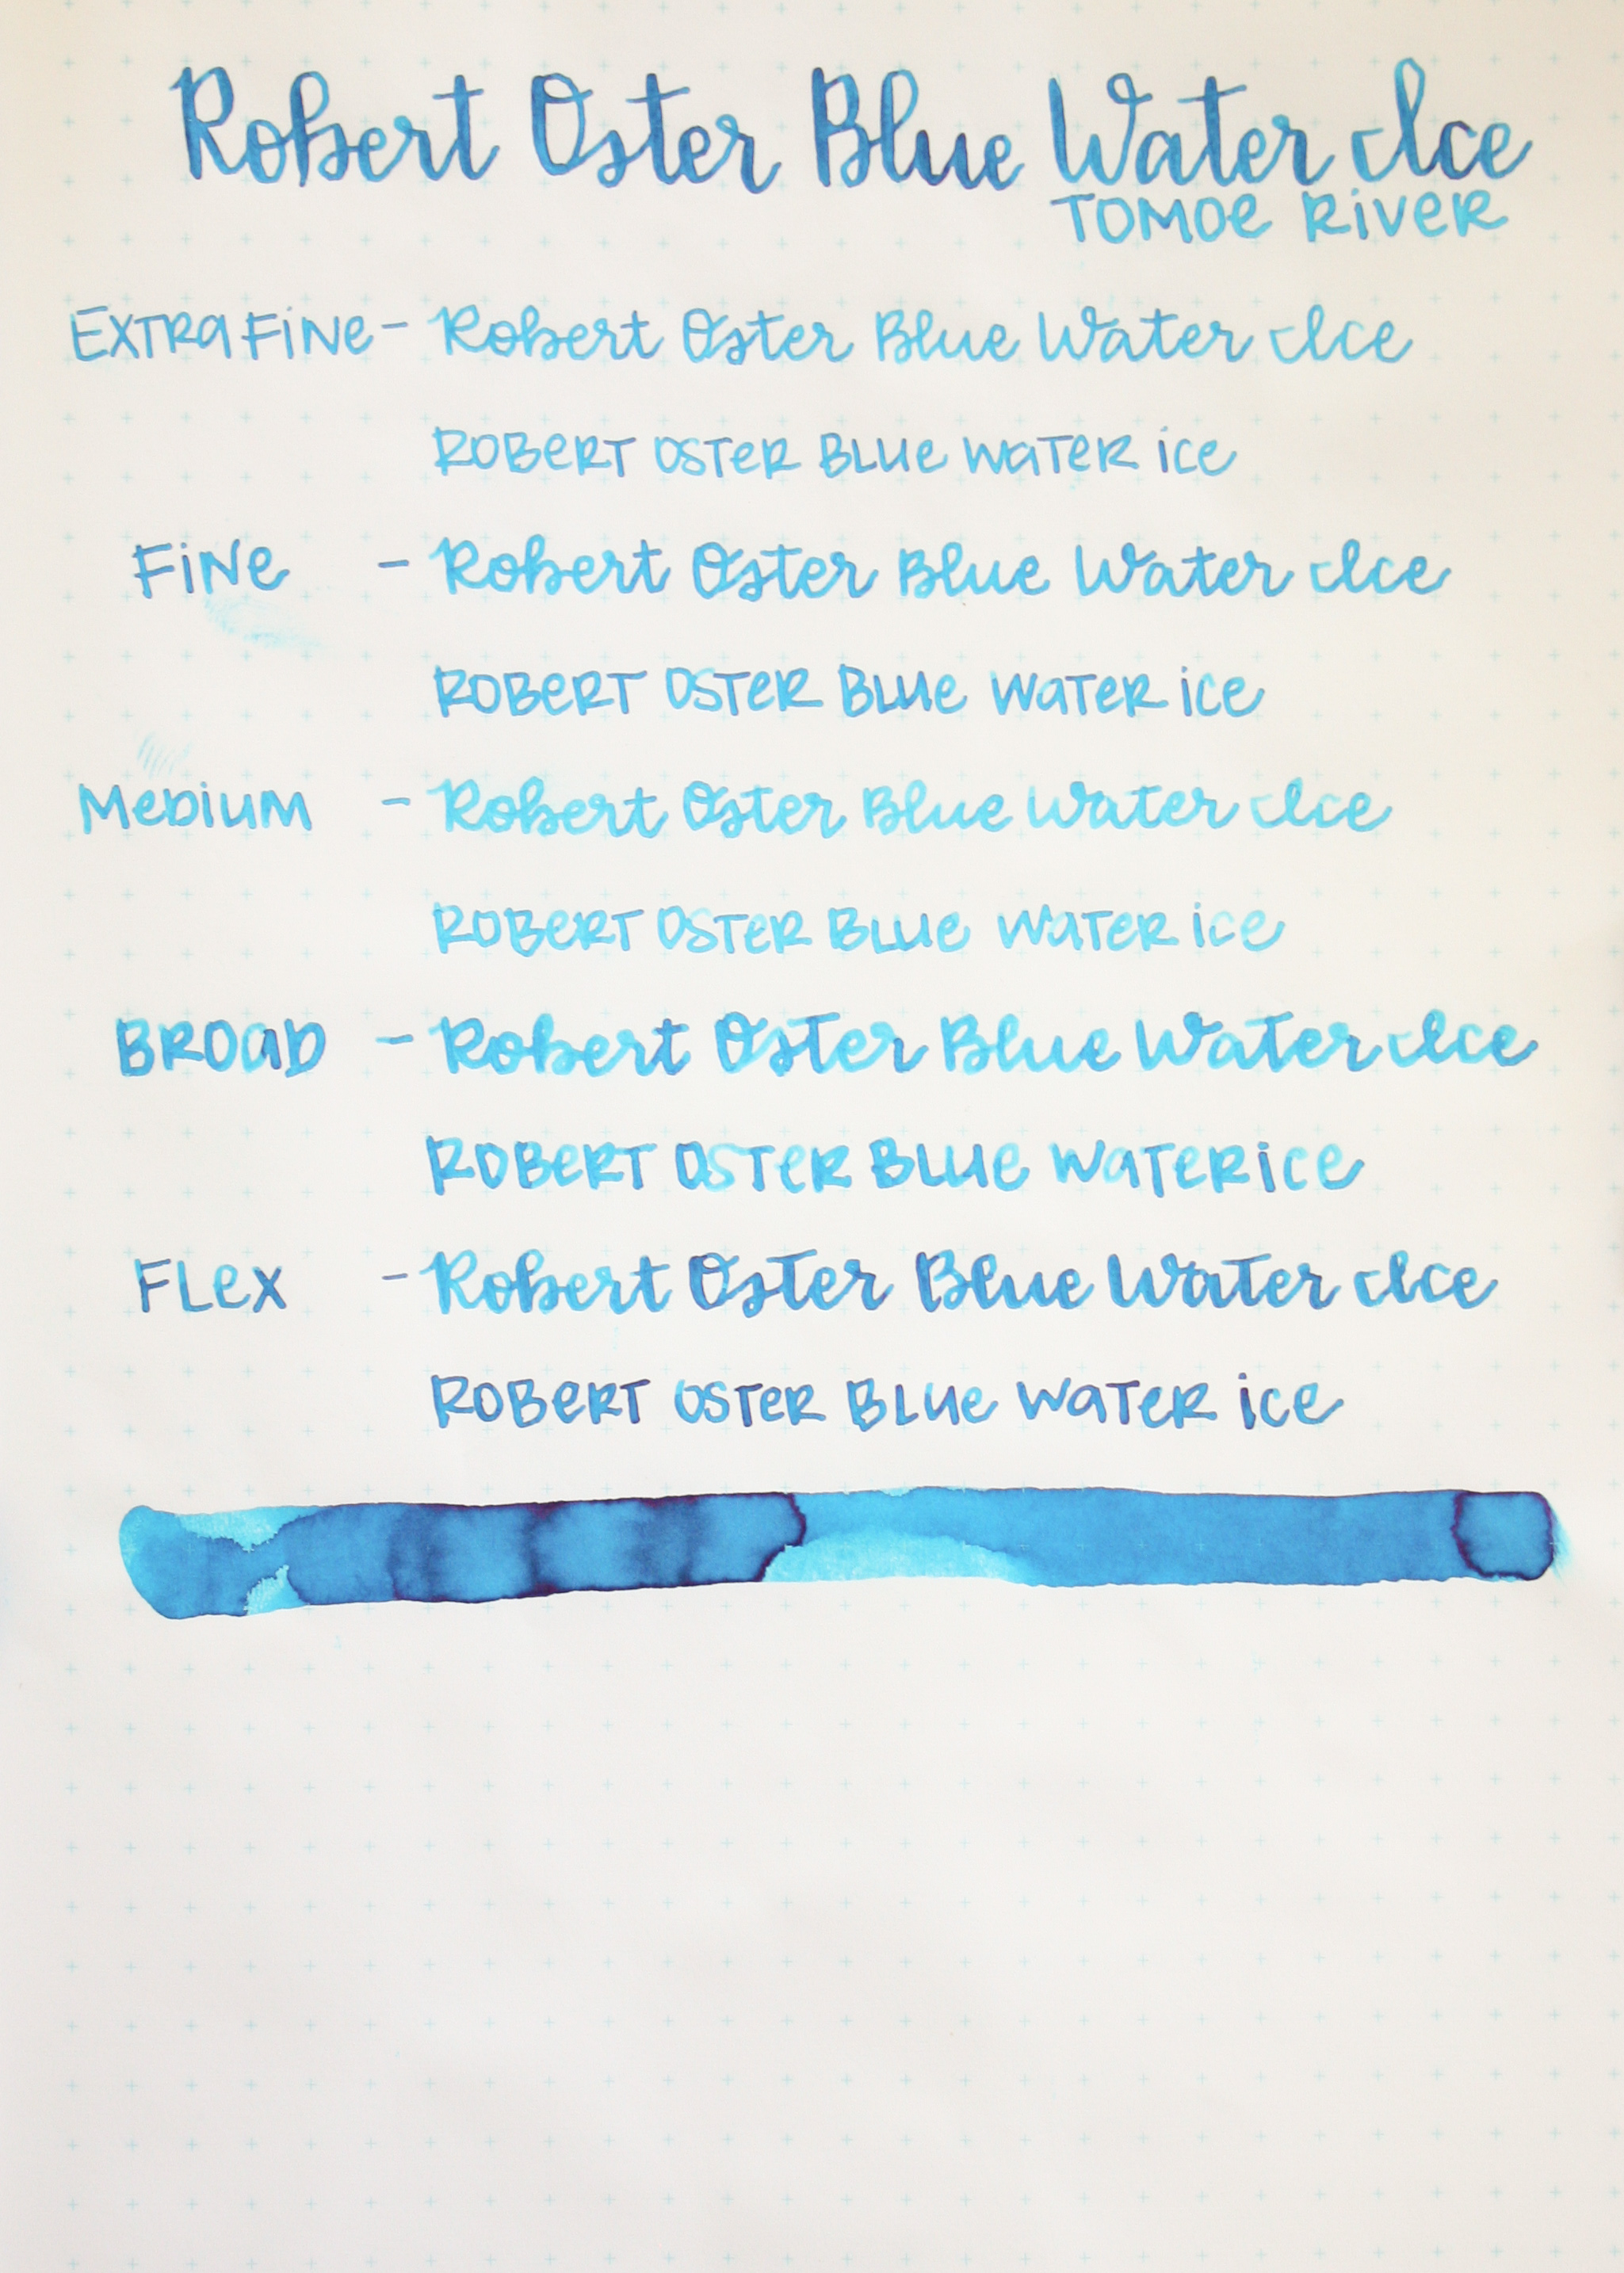 Robert Oster Blue Water Ice
TOMOe RiveR
EXTRa FiNe - Robert Oster Blue Water Ice
ROBeRT OSTeR BLUe WaTeR ice
FiNe - Robert Oster Blue Water Ice
ROBeRT OSTeR BLUe WaTeR ice
MeDiUM - Robert Oster Blue Water Ice
ROBeRT OSTeR BLUe WaTeR ice
BROaD - Robert Oster Blue Water Ice
ROBeRT OSTeR BLUe WaTeR ice
FLeX - Robert Oster Blue Water Ice
ROBeRT OSTeR BLUe WaTeR ice